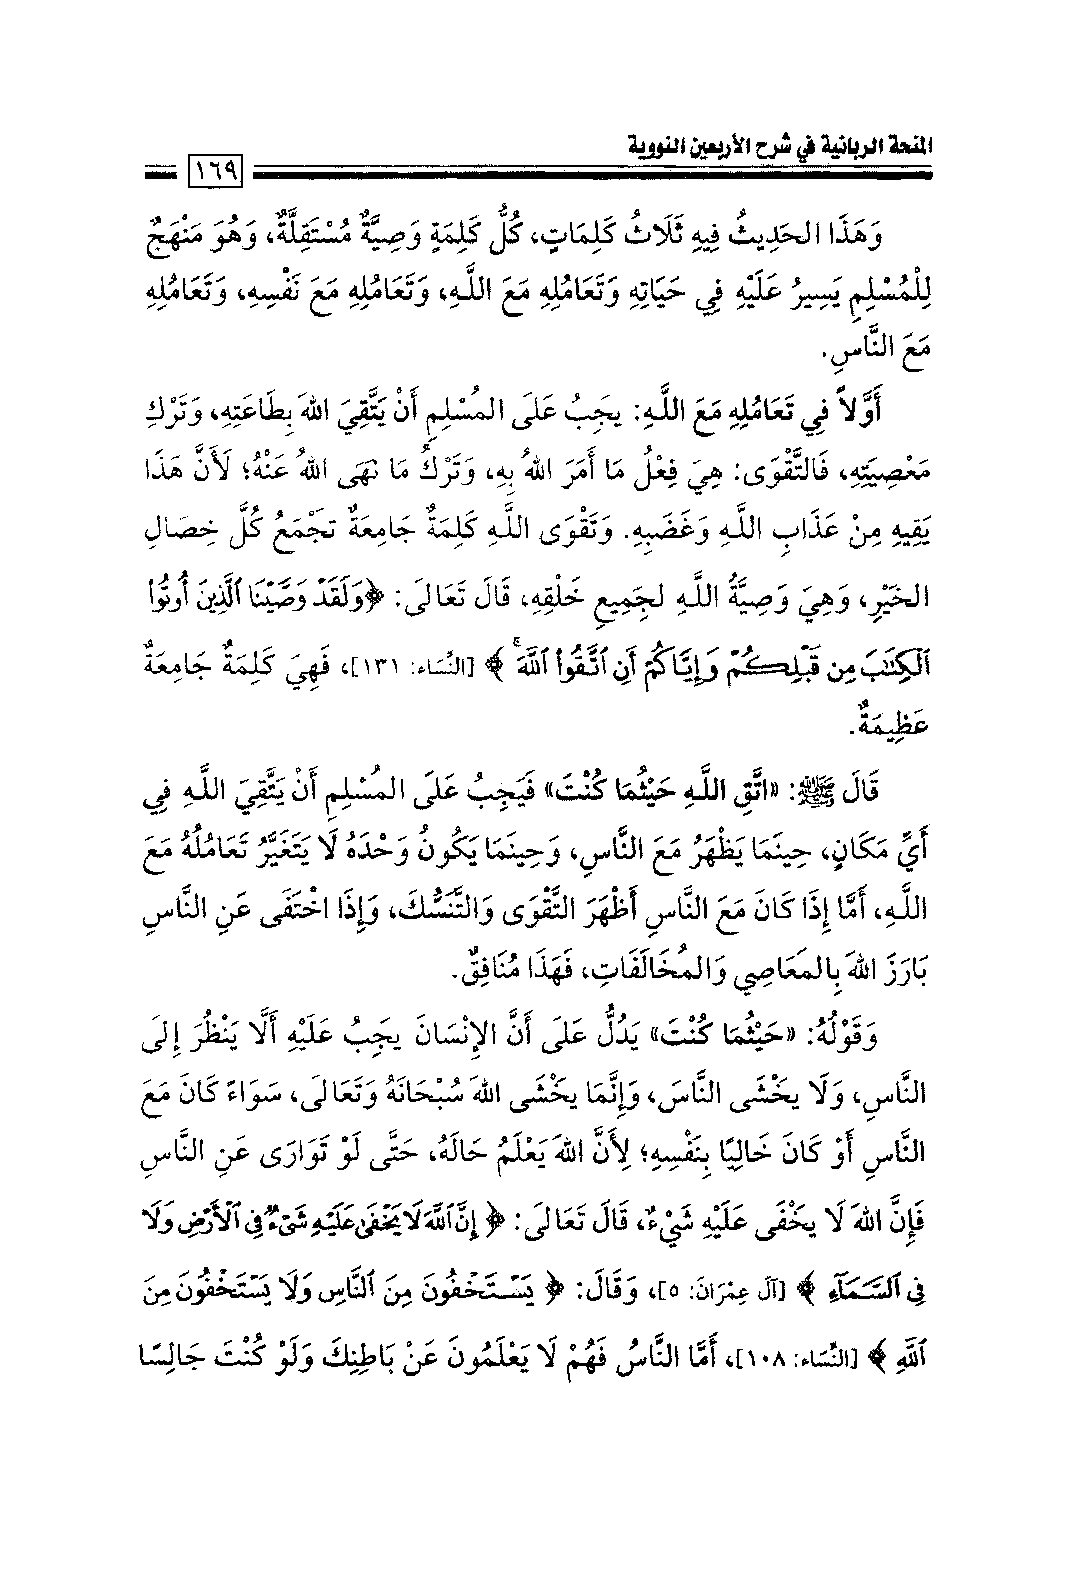 المنحة الربانية في شرح الأربعين النووية
١٦٩
وَهَذَا الحَدِيثُ فِيهِ ثَلَاثُ كَلِمَاتٍ، كُلُّ كَلِمَةٍ وَصِيَّةٌ مُسْتَقِلَّةٌ، وَهُوَ مَنْهَجٌ
لِلْمُسْلِمِ يَسِيرُ عَلَيْهِ فِي حَيَاتِهِ وَتَعَامُلِهِ مَعَ اللَّهِ، وَتَعَامُلِهِ مَعَ نَفْسِهِ، وَتَعَامُلِهِ
مَعَ النَّاسِ.
أَوَّلاً فِي تَعَامُلِهِ مَعَ اللَّهِ: يَجِبُ عَلَى المُسْلِمِ أَنْ يَتَّقِيَ اللهَ بِطَاعَتِهِ، وَتَرْكِ
مَعْصِيَتِهِ، فَالتَّقْوَى: هِيَ فِعْلُ مَا أَمَرَ اللهُ بِهِ، وَتَرْكُ مَا نَهَى اللهُ عَنْهُ؛ لَأَنَّ هَذَا
يَقِيهِ مِنْ عَذَابِ اللَّهِ وَغَضَبِهِ. وَتَقْوَى اللَّهِ كَلِمَةٌ جَامِعَةٌ تَجْمَعُ كُلَّ خِصَالِ
الخَيْرِ، وَهِيَ وَصِيَّةُ اللَّهِ لِجَمِيعِ خَلْقِهِ، قَالَ تَعَالَى: ﴿وَلَقَدْ وَصَّيْنَا ٱلَّذِينَ أُوتُواْ
ٱلْكِتَٰبَ مِن قَبْلِكُمْ وَإِيَّاكُمْ أَنِ ٱتَّقُواْ ٱللَّهَۚ﴾ [النِّسَاء: ١٣١]، فَهِيَ كَلِمَةٌ جَامِعَةٌ
عَظِيمَةٌ.
قَالَ ﷺ: «اتَّقِ اللَّهِ حَيْثُمَا كُنْتَ» فَيَجِبُ عَلَى المُسْلِمِ أَنْ يَتَّقِيَ اللَّهِ فِي
أَيِّ مَكَانٍ، حِينَمَا يَظْهَرُ مَعَ النَّاسِ، وَحِينَمَا يَكُونُ وَحْدَهُ لَا يَتَغَيَّرُ تَعَامُلُهُ مَعَ
اللَّهِ، أَمَّا إِذَا كَانَ مَعَ النَّاسِ أَظْهَرَ التَّقْوَى وَالتَّنَسُّكَ، وَإِذَا اخْتَفَى عَنِ النَّاسِ
بَارَزَ اللهَ بِالمَعَاصِي وَالمُخَالَفَاتِ، فَهَذَا مُنَافِقٌ.
وَقَوْلُهُ: «حَيْثُمَا كُنْتَ» يَدُلُّ عَلَى أَنَّ الإِنْسَانَ يَجِبُ عَلَيْهِ أَلَّا يَنْظُرَ إِلَى
النَّاسِ، وَلَا يَخْشَى النَّاسَ، وَإِنَّمَا يَخْشَى اللهَ سُبْحَانَهُ وَتَعَالَى، سَوَاءً كَانَ مَعَ
النَّاسِ أَوْ كَانَ خَالِيًا بِنَفْسِهِ؛ لِأَنَّ اللهَ يَعْلَمُ حَالَهُ، حَتَّى لَوْ تَوَارَى عَنِ النَّاسِ
فَإِنَّ اللهَ لَا يَخْفَى عَلَيْهِ شَيْءٌ، قَالَ تَعَالَى: ﴿إِنَّ ٱللَّهَ لَا يَخْفَىٰ عَلَيْهِ شَىْءٌ فِى ٱلْأَرْضِ وَلَا
فِى ٱلسَّمَآءِ﴾ [آل عِمْرَانَ: ٥]، وَقَالَ: ﴿يَسْتَخْفُونَ مِنَ ٱلنَّاسِ وَلَا يَسْتَخْفُونَ مِنَ
ٱللَّهِ﴾ [النِّسَاء: ١٠٨]، أَمَّا النَّاسُ فَهُمْ لَا يَعْلَمُونَ عَنْ بَاطِنِكَ وَلَوْ كُنْتَ جَالِسًا